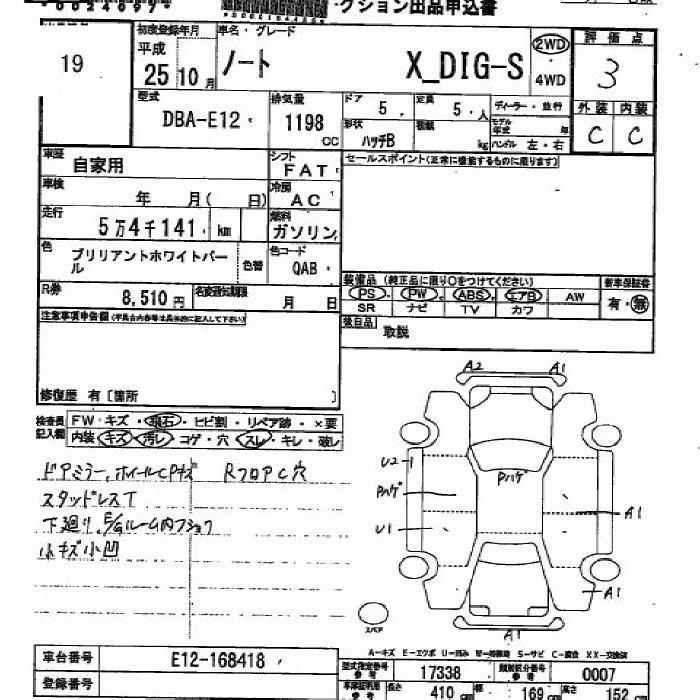 クション出品申込書
19
初度登録年月
平成
25 10 月
車名・グレード
ノート X_DIG-S
2WD
4WD
評価点
3
型式
DBA-E12
排気量
1198 CC
ドア 5
定員 5 人
形状 ハッチB
積載 kg
ディーラー・並行
モデル年式 年
ハンドル 左・右
外装 内装
C C
車歴 自家用
シフト FAT
セールスポイント(正常に機能するものに限ります)
車検 年 月( 日)
冷房 AC
走行 5万4千141 km
燃料 ガソリン
色 ブリリアントホワイトパール
色替
色コード QAB
R券 8,510 円
名変通知期限 月 日
装備品(純正品に限り○をつけてください)
PS PW ABS エアB AW
SR ナビ TV カワ
新車保証書
有・無
後日品 取説
注意事項申告欄(不具合内容等は具体的に記入して下さい)
修復歴 有〔箇所 〕
検査員記入欄
FW キズ・飛石・ヒビ割・リペア跡・×要
内装 キズ・汚レ・コゲ・穴・スレ・キレ・破レ
ドアミラー、ホイールCPキズ RフロアC穴
スタッドレスT
下廻り、E/Gルーム内フショク
小キズ小凹
A2 A1
U2
Pハゲ
Pハゲ
U1
A1
A1
A1
スペア
A-キズ E-エクボ U-凹み W-補修跡 S-サビ C-腐食 XX-交換済
車台番号 E12-168418
型式指定番号 17338
類別区分番号 0007
登録番号
長さ 410 cm 幅 169 cm 高さ 152 cm